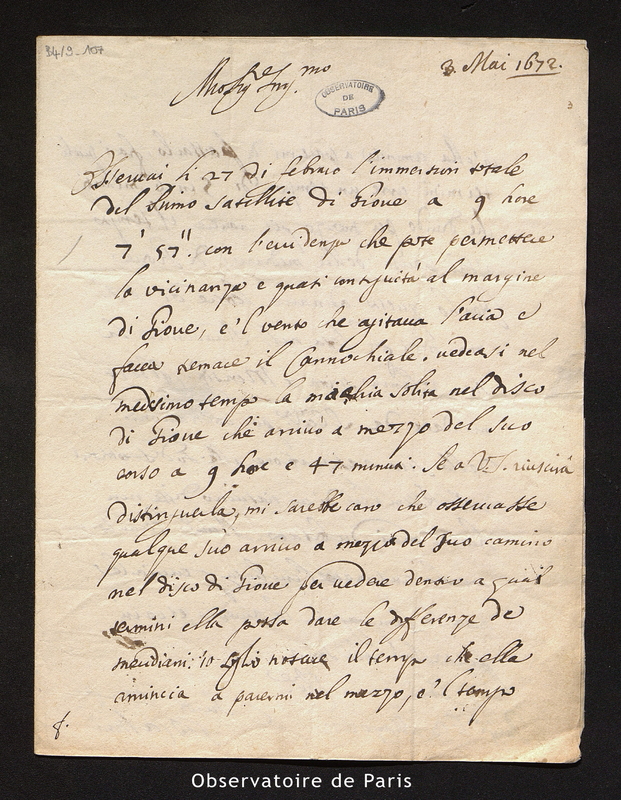 34/9-107
3 Mai 1672.
OBSERVATOIRE
DE
PARIS
3
Osservai li 27 di febraio l'immersion totale
del Primo Satellite di Giove a 9 hore
7' 57". con l'evidenza che pote permettere
la vicinanza e quasi contiguità al margine
di Giove, e'l vento che agitava l'aria e
facea tremare il Cannochiale. vedeasi nel
medesimo tempo la macchia solita nel disco
di Giove che arrivò a mezzo del suo
corso a 9 hore e 47 minuti. Se a V.S. riuscirà
distinguerla, mi sarebbe caro che osservasse
qualque suo arrivo a mezzo del suo camino
nel disco di Giove per vedere dentro a quai
termini ella possa dare le differenze de
meridiani. io soglio notare il tempo che ella
comincia a parermi nel mezzo, e'l tempo
f.
Observatoire de Paris